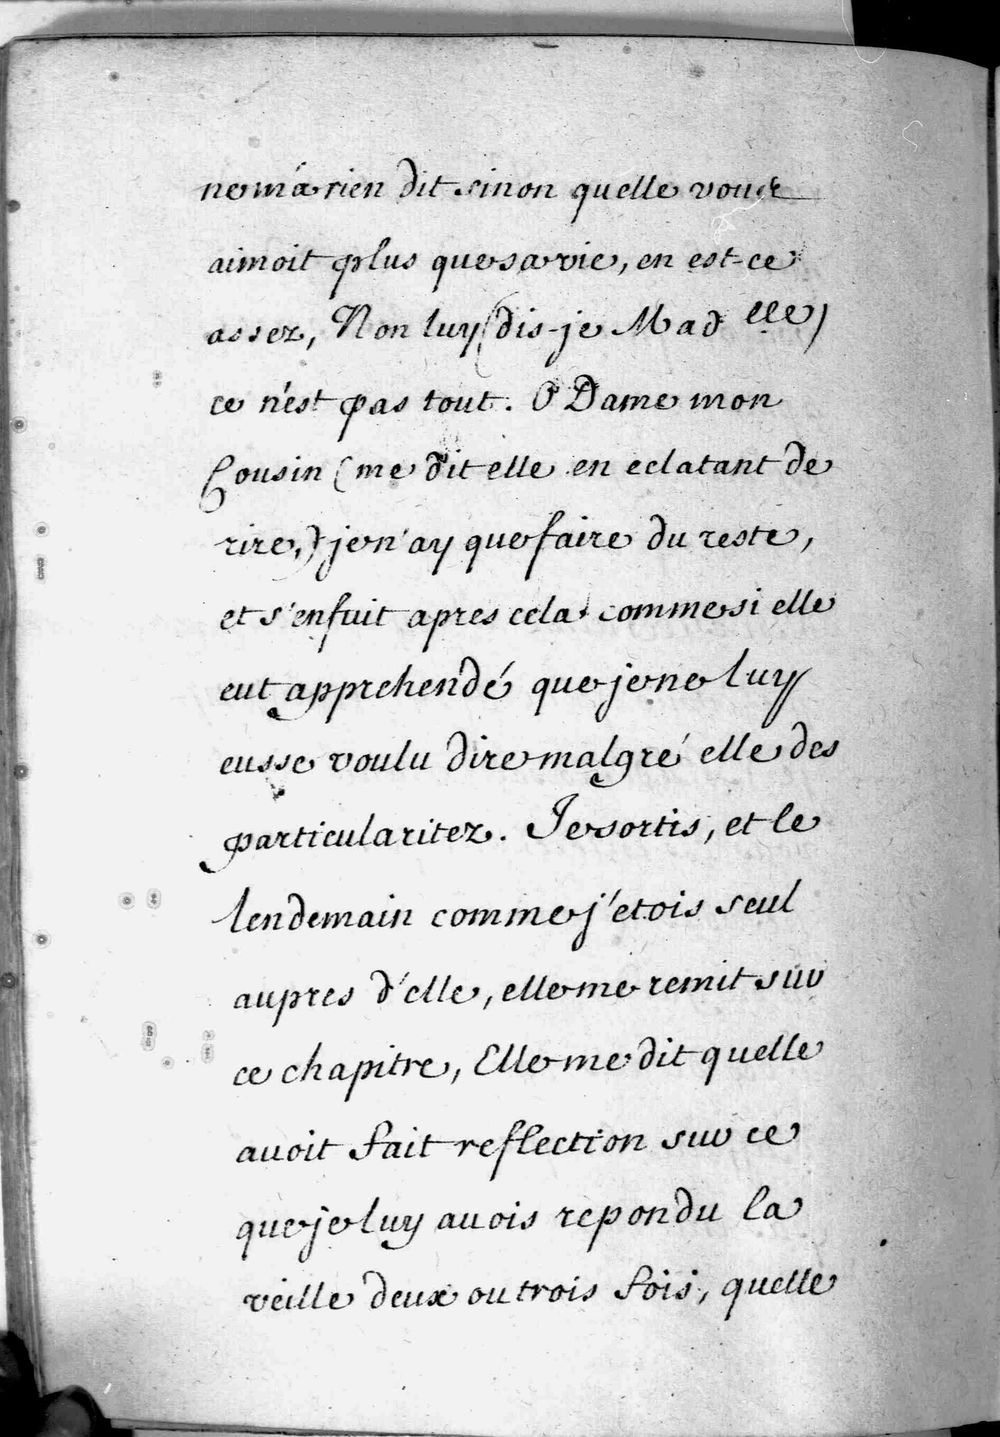 ne m'a rien dit sinon quelle vous
aimoit plus que sa vie, en est-ce
assez, Non luy (dis-je Mad elle)
ce n'est pas tout. O Dame mon
Cousin (me dit elle en eclatant de
rire,) je n'ay que faire du reste,
et s'enfuit apres cela comme si elle
eut apprehendé que je ne luy
eusse voulu dire malgré elle des
particularitez. Je sortis, et le
lendemain comme j'etois seul
aupres d'elle, elle me remit sur
ce chapitre, Elle me dit quelle
avoit fait reflection sur ce
que je luy avois repondu la
veille deux ou trois fois, quelle